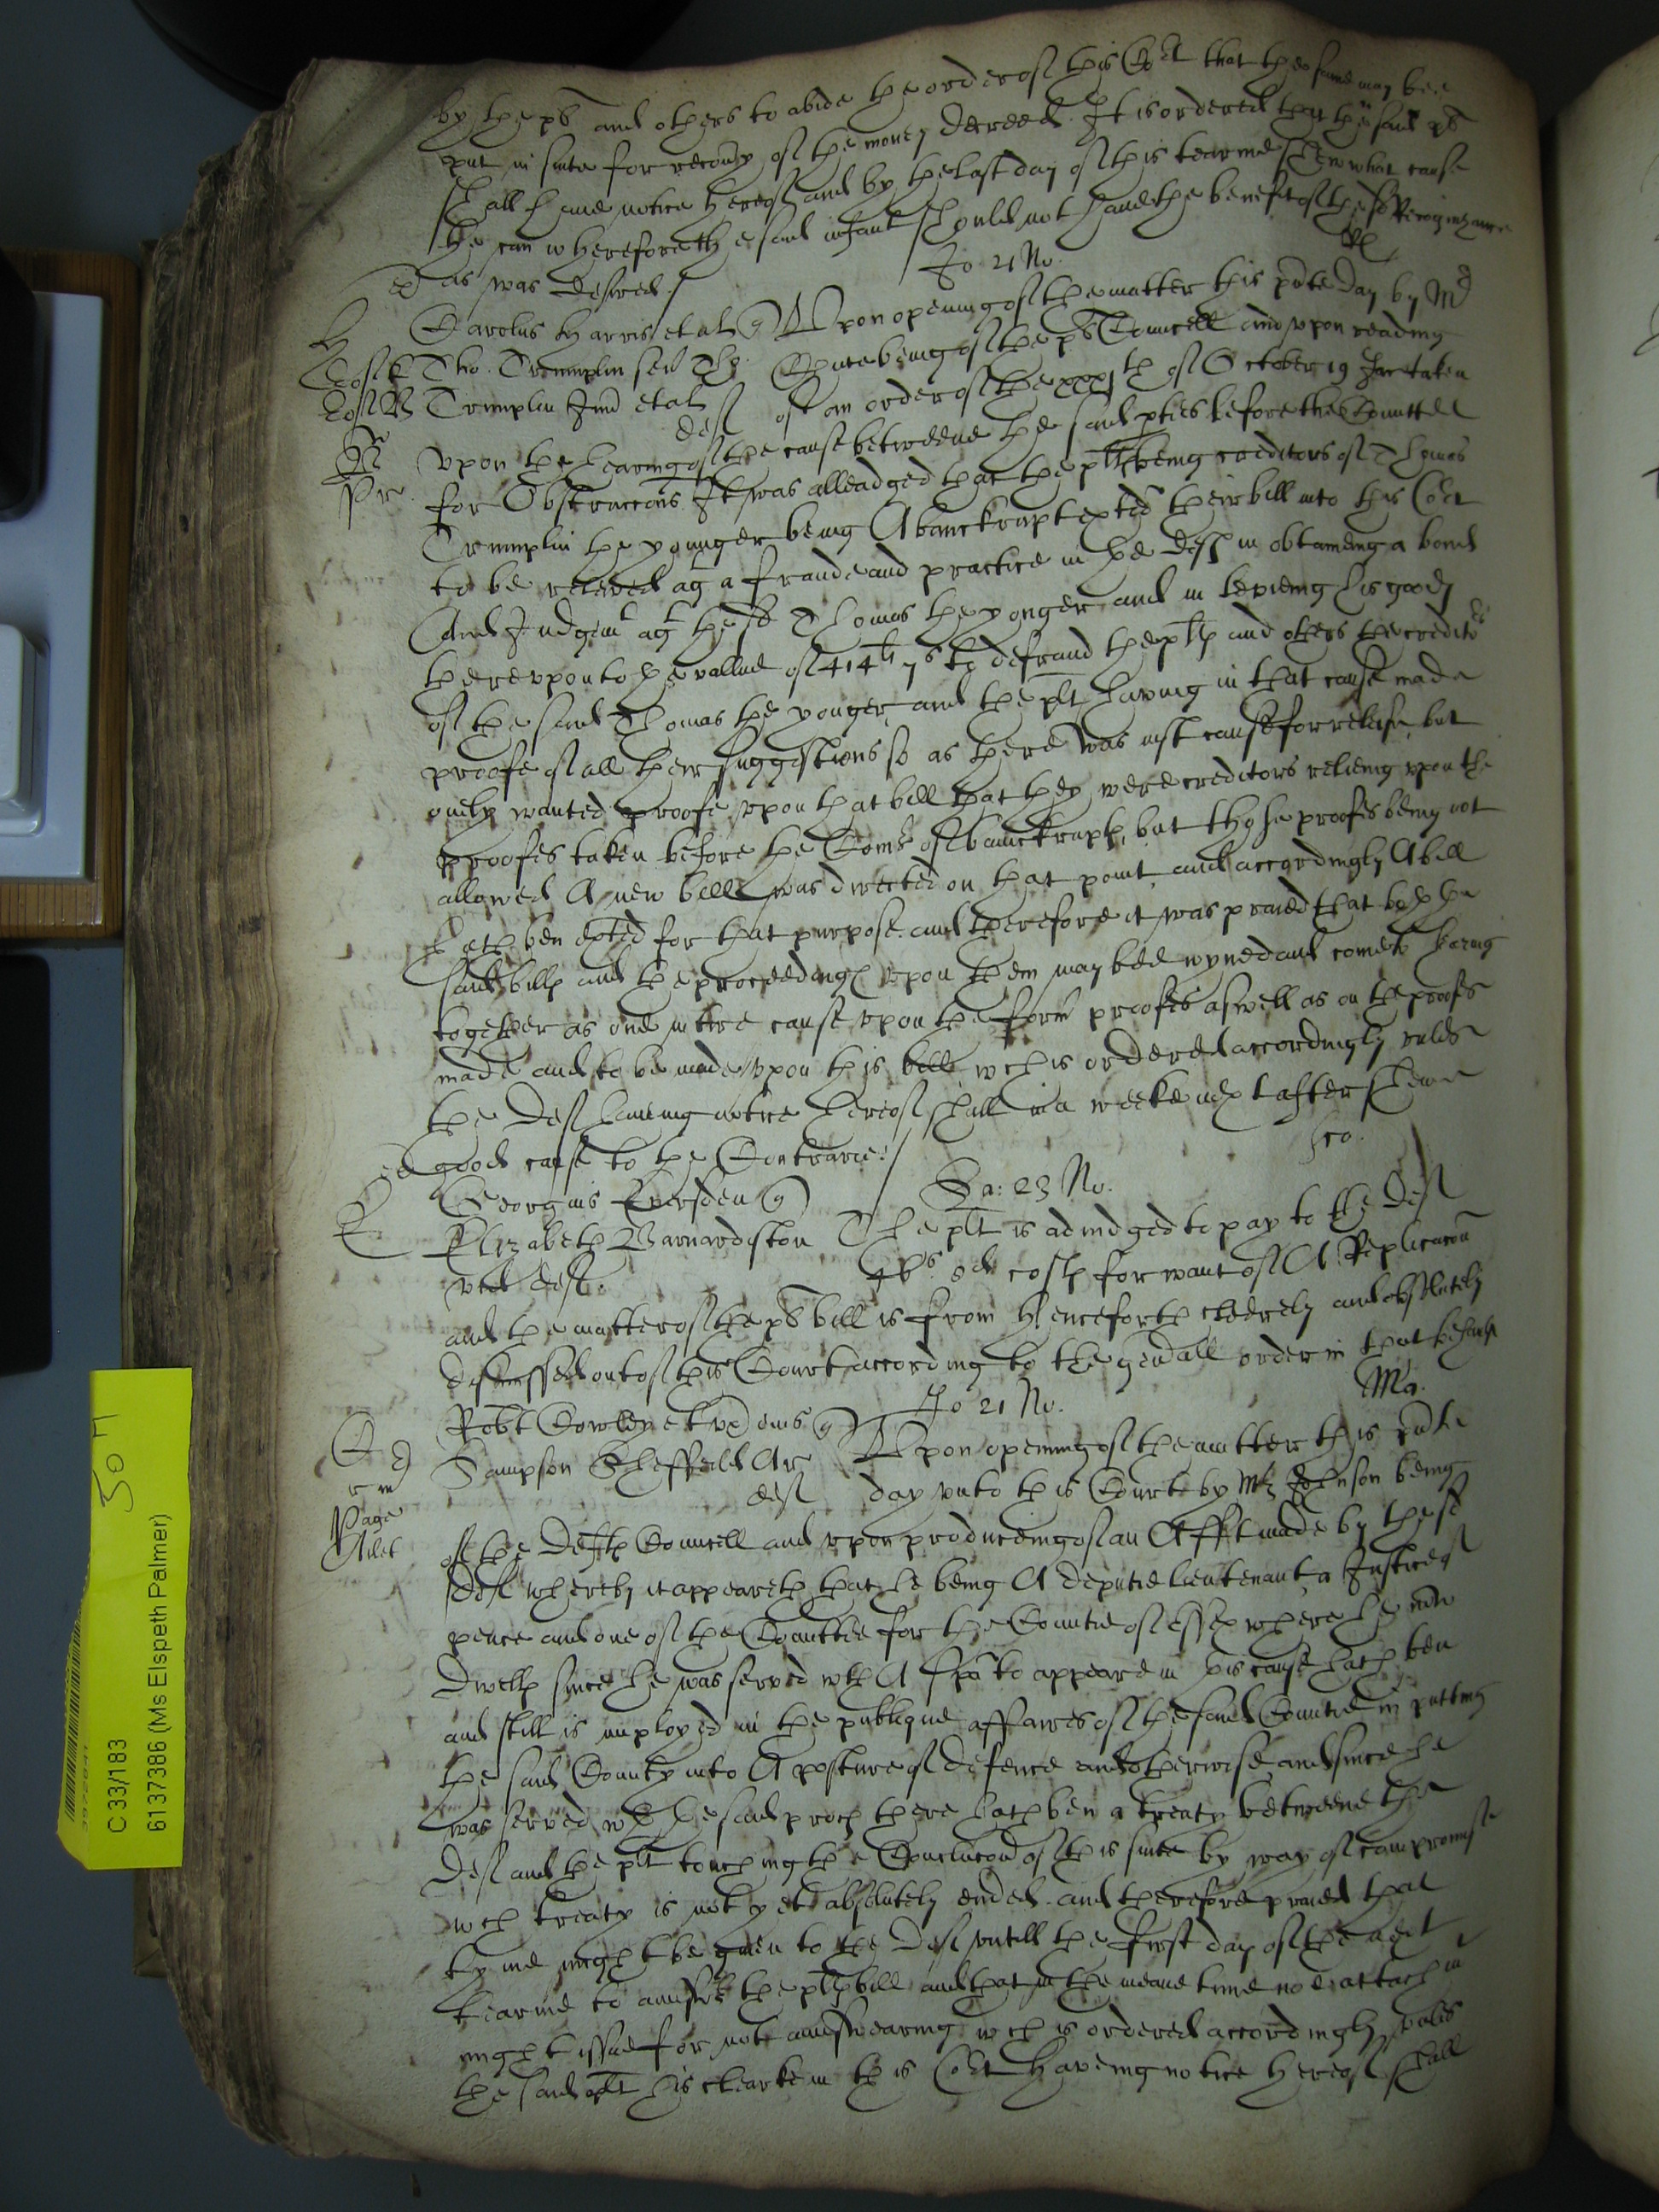 by the pts and others to abide the order of this Cort that the same may bee
put in suite for recovry of the money decreed. It is ordered that the said pts
shall have notice hereof and by the last day of this tearme shew what cause
he can wherefore the said infant should not have the benefit of the sd Recognizance
as was desired./
Jo 21 No.
Carolus Harris et al qr Upon opening of the matter this pnte day by Mr
Tho. Trumplin sen Th. Chute being of the pts Councell and upon reading
Trumplin Jun et al def of an order of the xxxth of October 19 Jac taken
upon the hearing of the cause betweene the said pties before the Comittee
for Obstruccons It was alleadged that the plts being creditors of Thomas
Trumplin the younger being A banckrupt exted their bill into this Cort
to be releived agt a fraude and practice in the defts in obtaineing a bond
And Judgemt agt the sd Thomas the yonger and in levieing his goods
thereupon to the vallue of 414li 7s to defraud the plts and others the creditors
of the said Thomas the yonger and the plt having in that cause made
proofe of all their suggestions so as there was just cause for releife, but
onely wanted proofe upon that bill that they were creditors relieing upon the
proofes taken before the Comrs of banckrupts, but those proofes being not
allowed A new bill was directed on that point and accordingly A bill
hath ben exted for that purpose. and therefore it was praied that both the
said bills and the proceedings upon them may bee joyned and come to hearing
together as one intire cause upon the formr proofes aswell as on the proofes
made and to be made upon this bill wch is ordered accordingly unles
the def haveing notice hereof shall in a weeke next after shew
good cause to the Contrarie./
Sa: 23 No.
Georgius Eversden qr
Elizabeth Barnardiston The plt is adiudged to pay to the def
vid def. costs for want of A Replicacon
and the matter of the pts bill is from henceforth cleerely and absolutely
dismissed out of this Court according to the genall order in that behalfe
Jo 21 No. Ma.
Robt Cowley et ux eius qr Upon opening of the matter this pnte
Sampson Sheffeild Ar def day unto this Court by Mr Johnson being
Page
of the Defts Councell and upon produceing of an Afft made by the sd
def whereby it appeareth that he being A deputie lieutenant a Justice of
peace and one of the Comittee for the Countie of Essex where he now
dwells since he was served wth A spa to appeare in this cause hath ben
and still is imployed in the publique affaires of the said Countie in putting
the said County into A posture of defence and otherwise and since he
was served wth the said proces there hath ben a treaty betweene the
def and the plt touching the Conclucon of this suite by way of compromise
wch treaty is not yet absolutely ended. and therefore praied that
tyme might be given to the def untill the first day of the next
tearme to answer the plts bill and that in the meane time noe attachmt
might issue for not answearing wch is ordered accordingly unles
the said plt his clearke in this Cort haveing notice hereof shall
C 33/183
6137386 (Ms Elspeth Palmer)